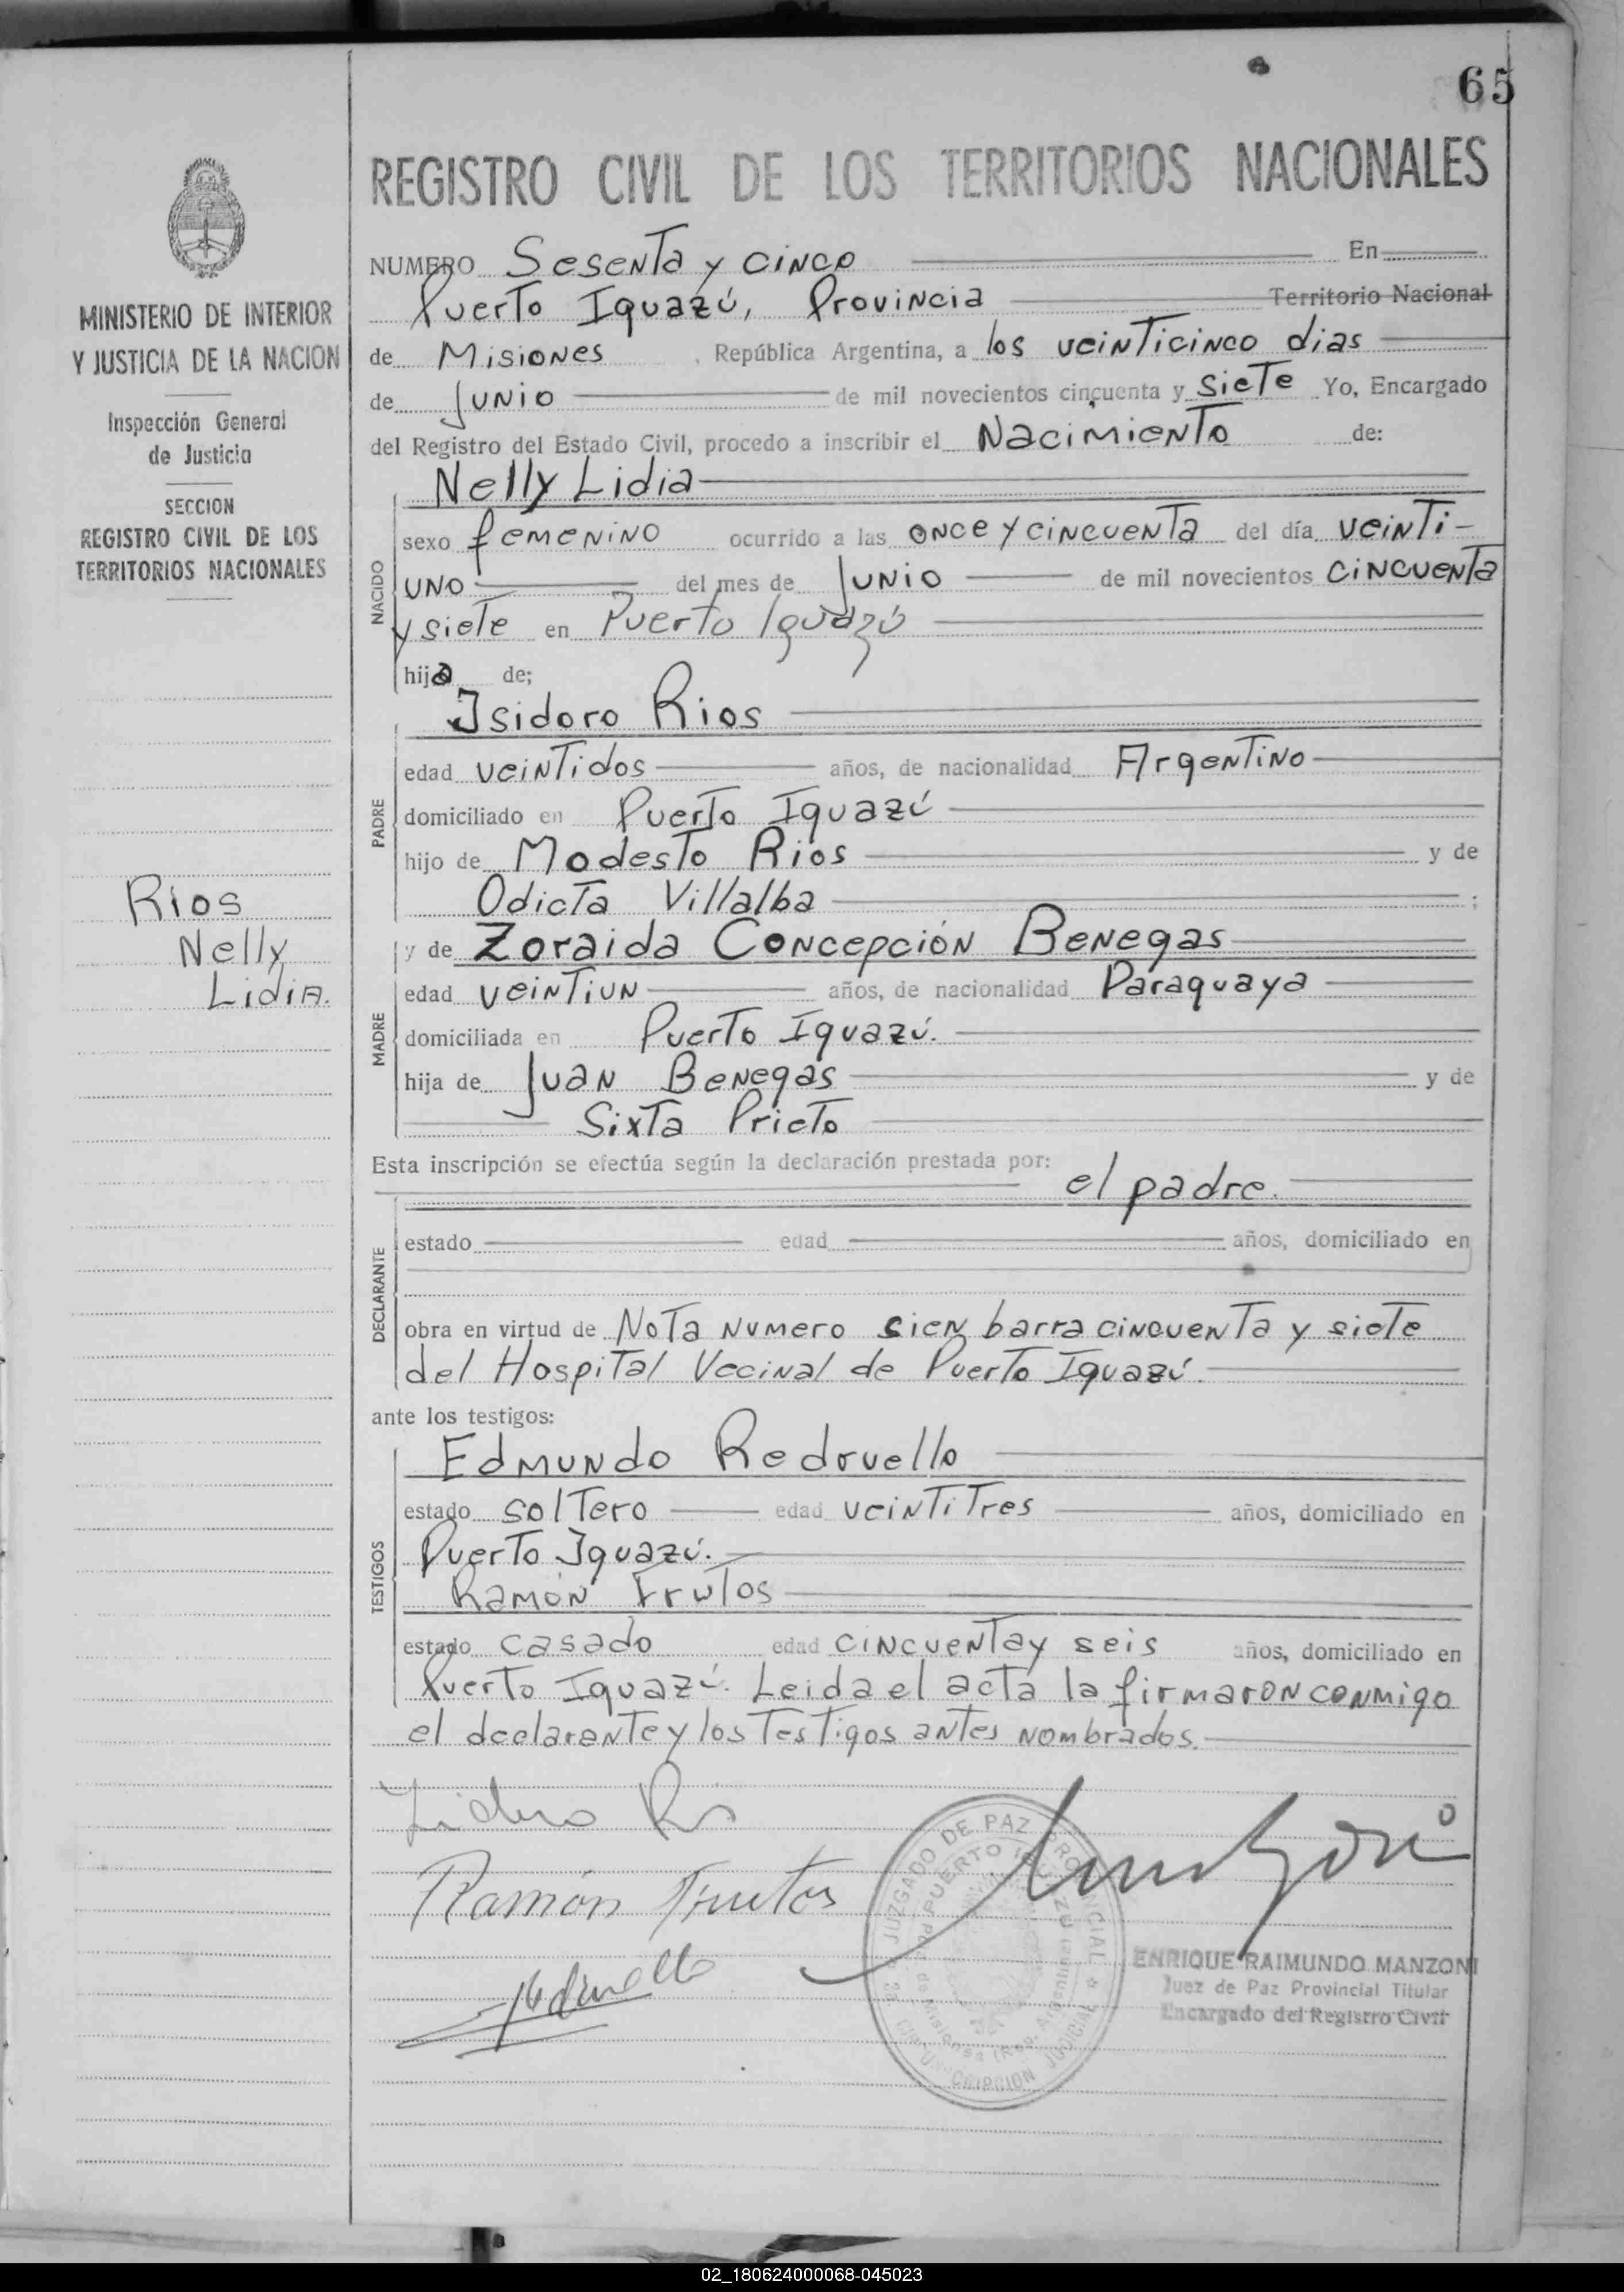 65
REGISTRO CIVIL DE LOS TERRITORIOS NACIONALES
MINISTERIO DE INTERIOR
Y JUSTICIA DE LA NACION
Inspección General
de Justicia
SECCION
REGISTRO CIVIL DE LOS
TERRITORIOS NACIONALES
Rios
Nelly
Lidia.
NUMERO Sesenta y cinco En
Puerto Iguazú, Provincia Territorio Nacional
de Misiones, República Argentina, a los veinticinco dias
de Junio de mil novecientos cincuenta y siete Yo, Encargado
del Registro del Estado Civil, procedo a inscribir el Nacimiento de:
NACIDO
Nelly Lidia
sexo femenino ocurrido a las once y cincuenta del día veinti-
uno del mes de Junio de mil novecientos cincuenta
y siete en Puerto Iguazú
hija de;
PADRE
Isidoro Rios
edad veintidos años, de nacionalidad Argentino
domiciliado en Puerto Iguazú
hijo de Modesto Rios y de
Odicta Villalba ;
MADRE
y de Zoraida Concepción Benegas
edad veintiun años, de nacionalidad Paraguaya
domiciliada en Puerto Iguazú.
hija de Juan Benegas y de
Sixta Prieto
Esta inscripción se efectúa según la declaración prestada por:
el padre.
DECLARANTE
estado edad años, domiciliado en
obra en virtud de Nota numero cien barra cincuenta y siete
del Hospital Vecinal de Puerto Iguazú.
ante los testigos:
TESTIGOS
Edmundo Redruello
estado soltero edad veintitres años, domiciliado en
Puerto Iguazú.
Ramón Frutos
estado casado edad cincuenta y seis años, domiciliado en
Puerto Iguazú. Leida el acta la firmaron conmigo
el declarante y los testigos antes nombrados.
Ramón Frutos
JUZGADO DE PAZ PROVINCIAL
PUERTO IGUAZU
CIRCUNSCRIPCION JUDICIAL
ENRIQUE RAIMUNDO MANZONI
Juez de Paz Provincial Titular
Encargado del Registro Civil
02_180624000068-045023